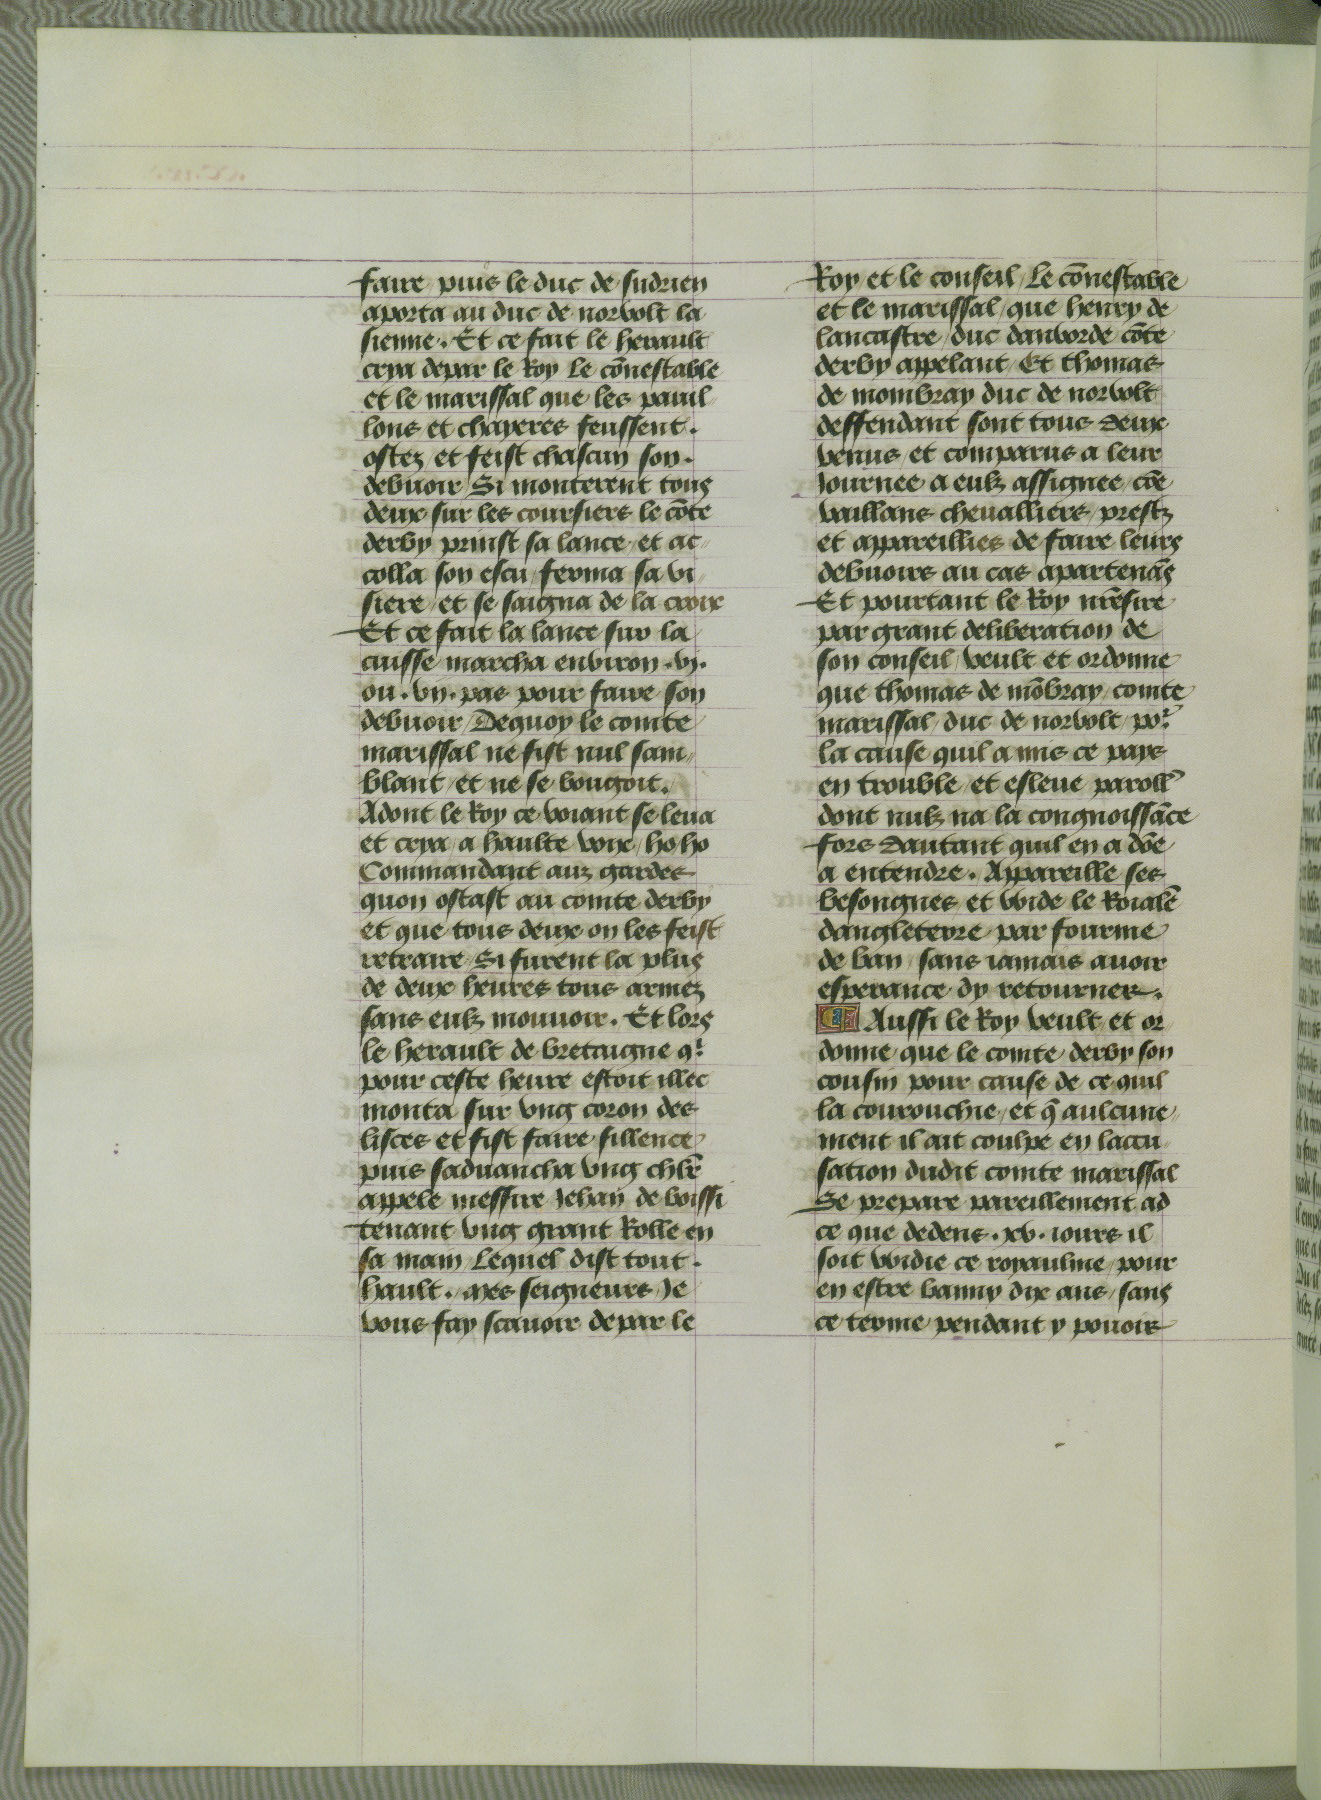 faire puis le duc de sudrien
aporta au duc de norvolt la
sienne. Et ce fait le herault
crya depar le Roy Le cōnestable
et le marissal que les pauil
lons et chayeres feussent.
ostez et feist chascun son.
debuoir Si monterent tous
deux sur les coursiers le cōte
derby prinst sa lance et ac
colla son escu ferma sa vi
siere et se saigna de la croix
Et ce fait la lance sur la
cuisse marcha environ .vj.
ou .vij. pas pour faire son
debuoir Dequoy le comte
marissal ne fist nul sam
blant et ne se bougoit.
Adont le Roy ce voiant se leua
et crya a haulte voix ho ho
Commandant aux gardes
quon ostast au comte derby
et que tous deux on les feist
retraire Si furent la plus
de deux heures tous armez
sans eulz mouuoir. Et lors
le herault de bretaigne qⁱ
pour ceste heure estoit illec
monta sur vng coron des
lisces et fist faire sillence
puis saduancha vng chlr̄
appele messire Jehan de boissi
tenant vng grant Rolle en
sa main Lequel dist tout.
hault. mes seigneurs Je
vous fay scauoir depar le
Roy et le conseil Le cōnestable
et le marissal que henry de
lancastre duc danvorde cōte
derby appelant Et thomas
de mombray duc de norvolt
deffendant sont tous deux
venus et comparus a leur
Journee a eulz assignee cōe
vaillans cheualliers prestz
et appareillies de faire leurs
debuoirs au cas apartenās
Et pourtant le Roy nr̄e sire
par grant deliberation de
son conseil veult et ordonne
que thomas de mōbray comte
marissal duc de norvolt poʳ
la cause quil a mis ce pays
en trouble et esleue paroll'
dont nulz na la congnoissāce
fors dautant quil en a dōe
a entendre. Appareille ses
besongnes et wide le Roialē
dangleterre par fourme
de ban sans iamais auoir
esperance dy retourner.
Aussi le Roy veult et or
donne que le comte derby son
cousin pour cause de ce quil
la courouchie et q̄ aulcune
ment il ait coulpe en laccu
sation dudit comte marissal
Se prepare pareillement ad
ce que dedens .xv. iours il
soit widie ce royaulme pour
en estre banny dix ans sans
ce terme pendant y pouoir